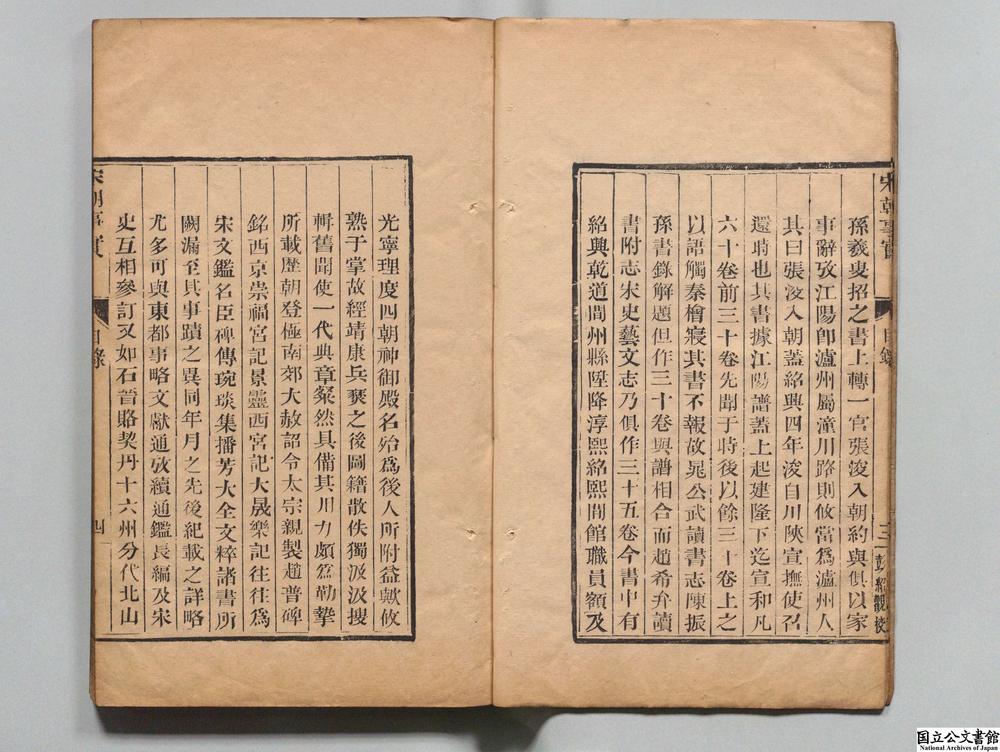 宋朝事實
目錄
三
彭紹觀校
孫羲叟招之書上轉一官張浚入朝約與俱以家
事辭攷江陽卽瀘州屬潼川路則攸當爲瀘州人
其曰張浚入朝蓋紹興四年浚自川陝宣撫使召
還時也其書據江陽譜蓋上起建隆下迄宣和凡
六十卷前三十卷先聞于時後以餘三十卷上之
以語觸秦檜寢其書不報故晁公武讀書志陳振
孫書錄解題但作三十卷與譜相合而趙希弁讀
書附志宋史藝文志乃俱作三十五卷今書中有
紹興乾道間州縣陞降淳熙紹熙間館職員額及
光寧理度四朝神御殿名殆爲後人所附益歟攸
熟于掌故經靖康兵燹之後圖籍散佚獨汲汲搜
輯舊聞使一代典章粲然具備其用力頗爲勤摯
所載歷朝登極南郊大赦詔令太宗親製趙普碑
銘西京崇福宮記景靈西宮記大晟樂記往往爲
宋文鑑名臣碑傳琬琰集播芳大全文粹諸書所
闕漏至其事蹟之異同年月之先後紀載之詳略
尤多可與東都事略文獻通攷續通鑑長編及宋
史互相參訂又如石晉賂契丹十六州分代北山
宋朝事實
目錄
四
国立公文書館
National Archives of Japan